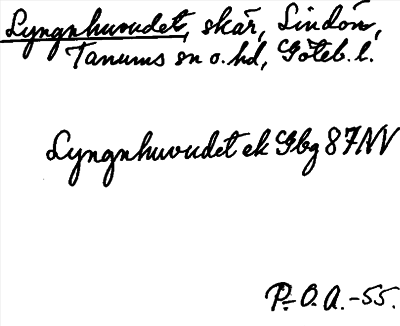 Lyngnhuvudet, skär, Lindön,
Tanums sn o. hd, Göteb. l.
Lyngnhuvudet ek Gbg 87NV
P.O.A. -55.